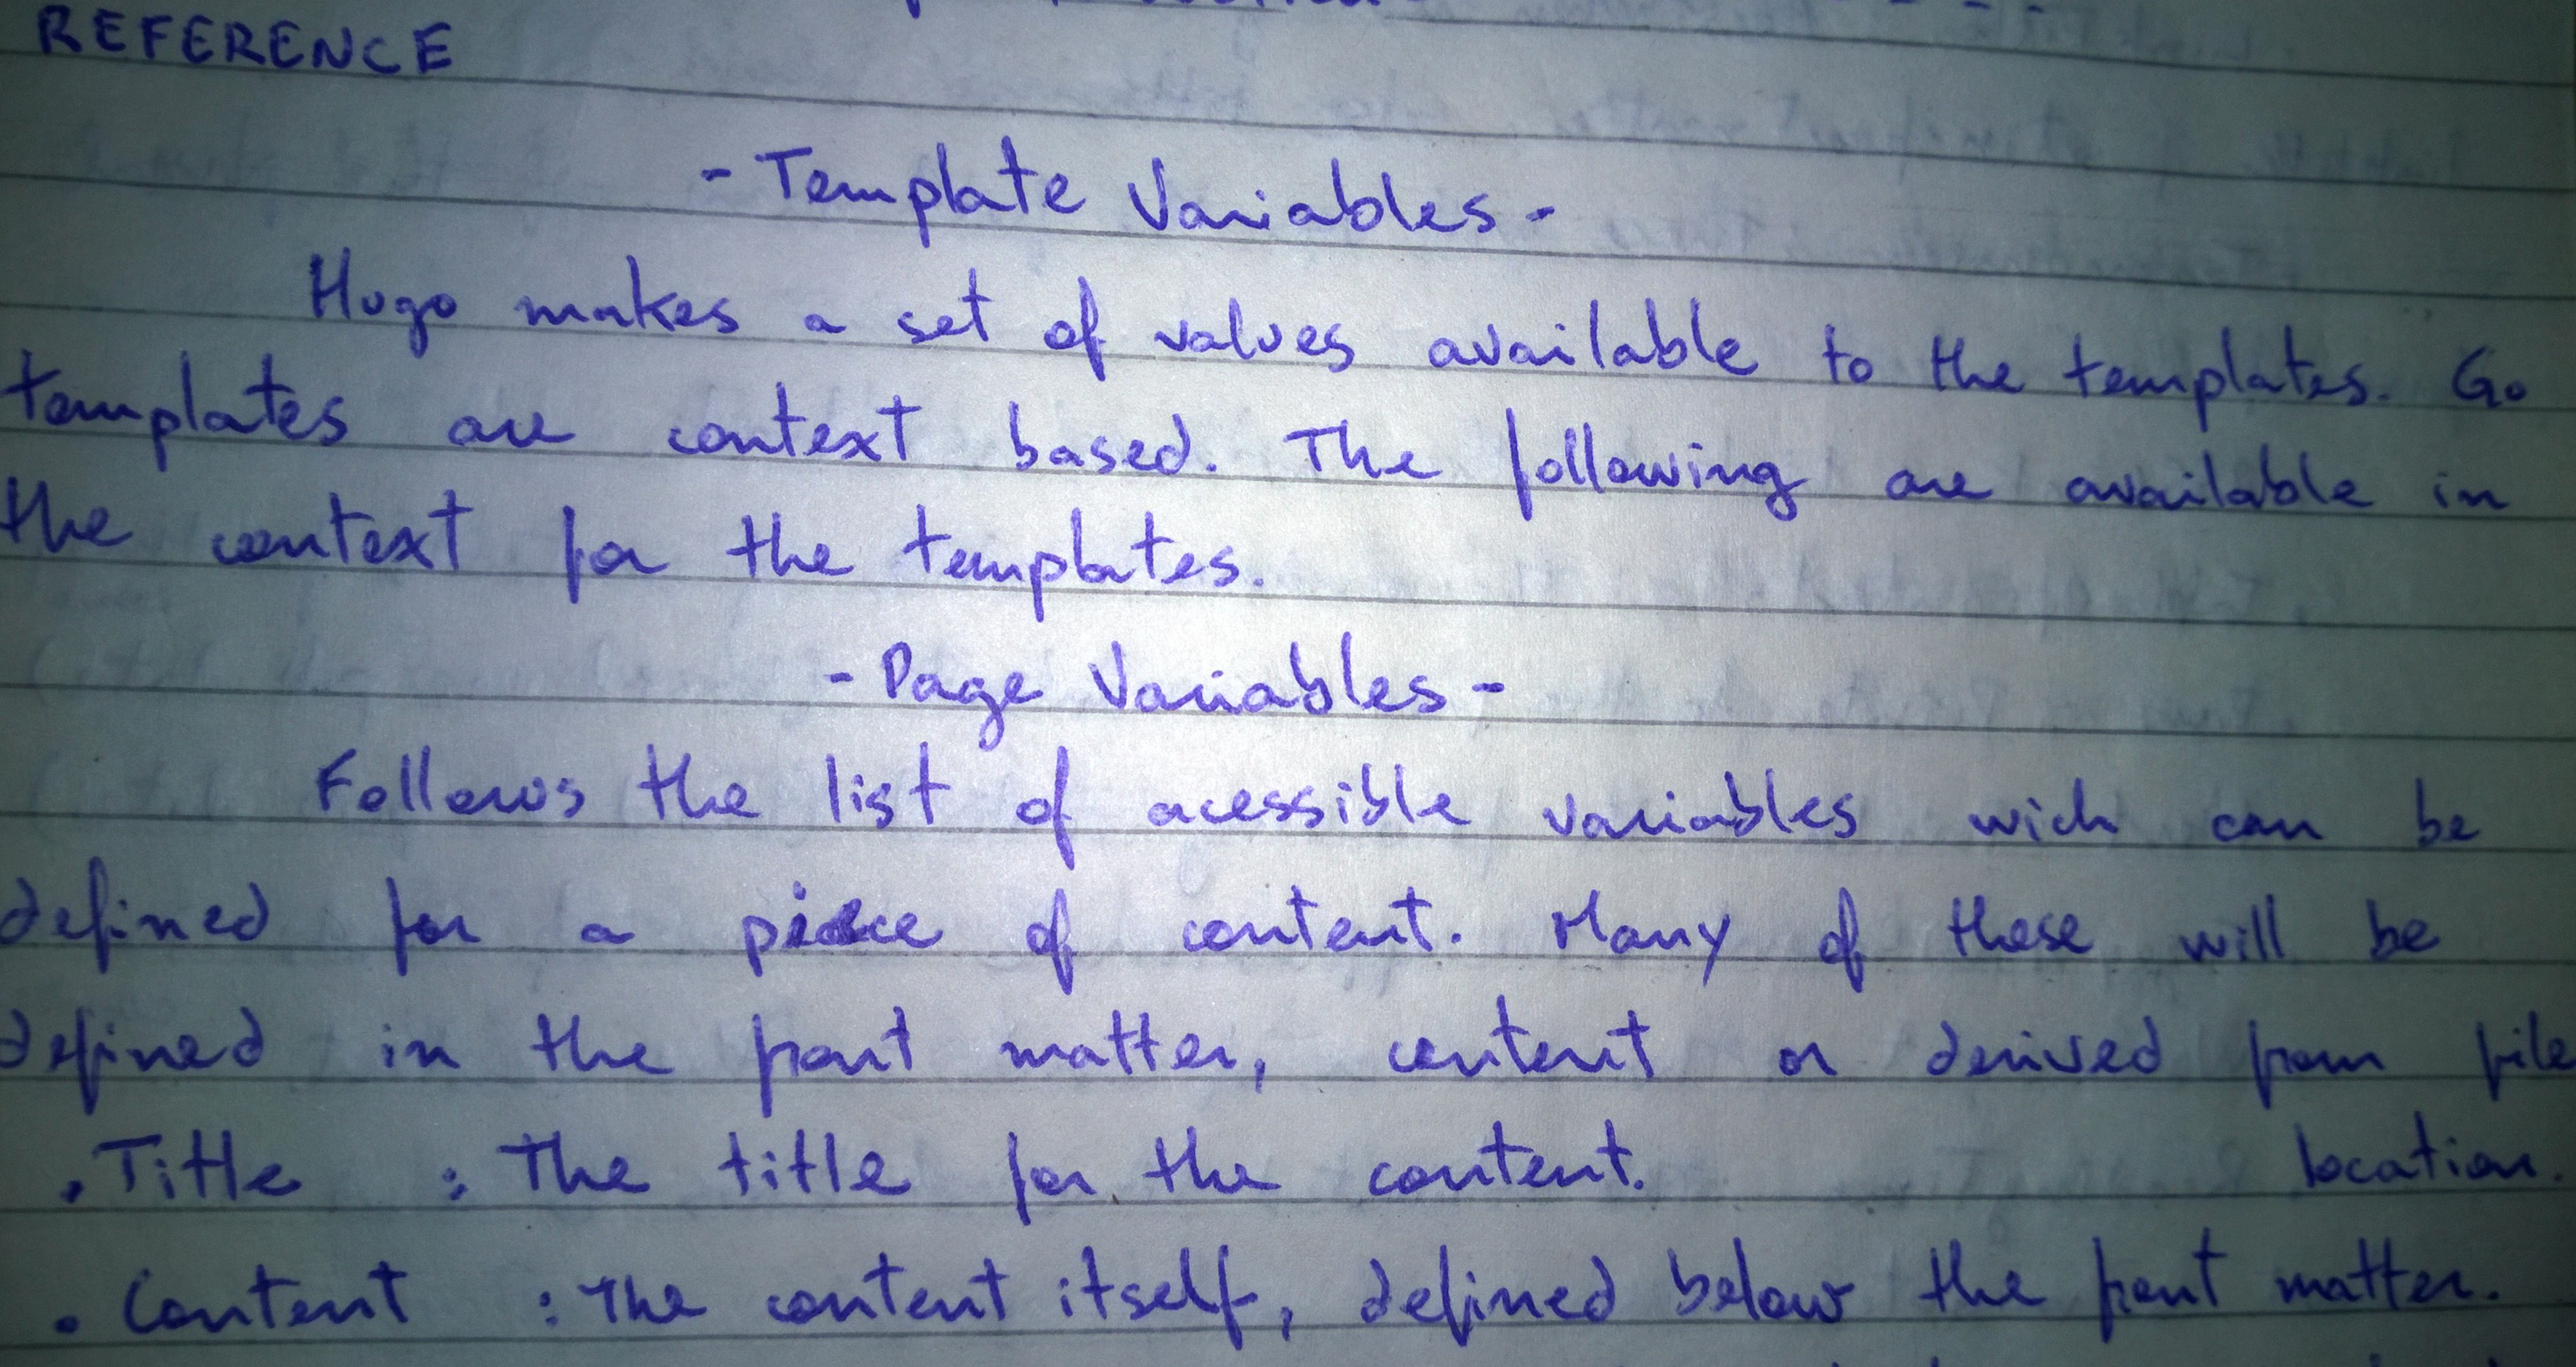 REFERENCE
- Template Variables -
Hugo makes a set of values available to the templates. Go
templates are context based. The following are available in
the context for the templates.
- Page Variables -
Follows the list of acessible variables wich can be
defined for a piece of content. Many of these will be
defined in the front matter, content or derived from file
location.
.Title : The title for the content.
.Content : The content itself, defined below the front matter.